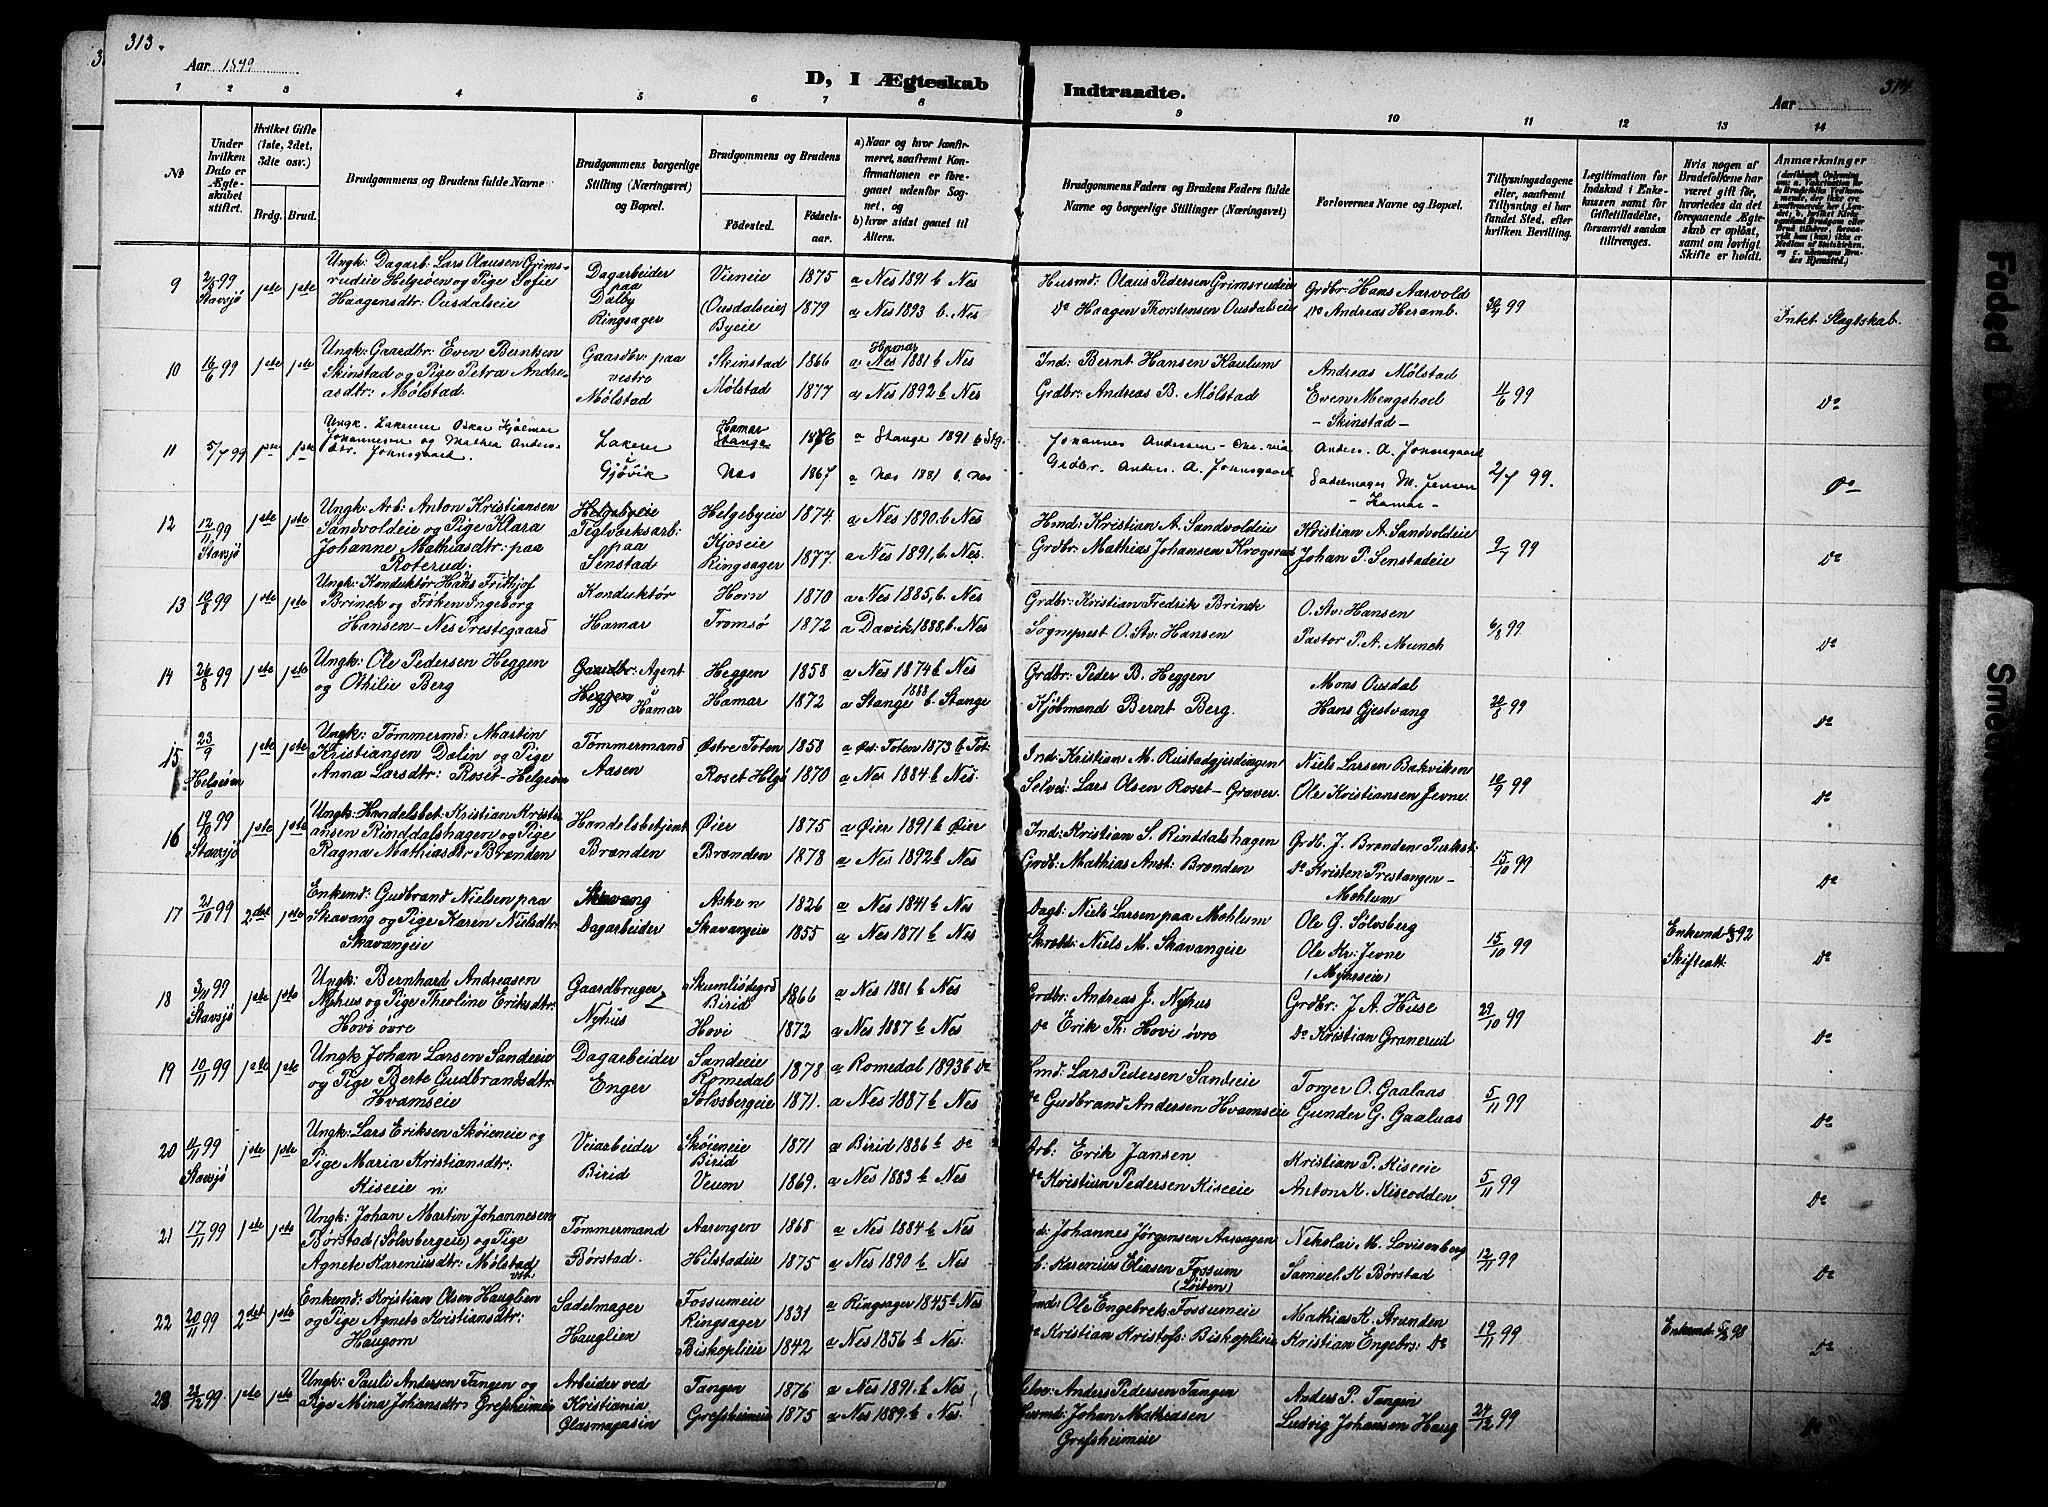 313.
314.
Aar 1899
D, I Ægteskab Indtraadte.
Aar
1 2 3 4 5 6 7 8 9 10 11 12 13 14
No
Under hvilken Dato er Ægteskabet stiftet.
Hvilket Gifte (1ste, 2det, 3die osv.)
Brdg. Brud.
Brudgommens og Brudens fulde Navne
Brudgommens borgerlige Stilling (Næringsvei) og Bopæl.
Brudgommens og Brudens
Fødested.
Fødselsaar.
a) Naar og hvor konfirmeret, saafremt Konfirmationen er foregaaet udenfor Sognet, og
b) hvor sidst gaaet til Alters.
Brudgommens Faders og Brudens Faders fulde Navne og borgerlige Stillinger (Næringsvei)
Forlovernes Navne og Bopæl.
Tillysningsdagene eller, saafremt Tillysning ei har fundet Sted, efter hvilken Bevilling.
Legitimation for Indskud i Enkekassen samt for Giftetilladelse, forsaavidt saadan tiltrænges.
Hvis nogen af Brudefolkene har været gift før, hvorledes da det foregaaende Ægteskab er opløst, samt om lovligt Skifte er holdt.
Anmærkninger
9 Stavsjø 1ste 1ste Ungk: Dagarb: Lars Olausen Grimsrudeie Helgøen og Pige Sofie Haagensdtr: Ousdalseie
Dagarbeider paa Dalby Ringsager
Vieneie 1875 a Nes 1891 b Nes
(Ousdalseie) Byeie 1879 a Nes 1893 b. Nes
Husmd: Olaus Pedersen Grimsrudeie
Do Haagen Thorstensen Ousdalseie
Grdbr: Hans Aarvold
Do Andreas Heramb.
Intet Slagtskab.
10 16/6 99 1ste 1ste Ungk: Gaardbr: Even Berntsen Skinstad og Pige Petra Andreasdtr: Mølstad.
Gaardbr: paa vestre Mølstad
Skinstad 1866 a Nes Hamar 1881 b Nes
Mølstad 1877 a Nes 1892 b Nes
Ind: Bernt Hansen Kaulum
Grdbr: Andreas B. Mølstad
Andreas Mølstad
Even Mengshoel - Skinstad -
4/6 99
Do
11 5/7 99 1ste 1ste Ungk. Lakerer Oskar Hjalmar Johannesen og Mathea Andersdtr. Johnsgaard.
Lakerer i Gjøvik
Hamar Stange 1876 a Stange 1891 b Stg.
Nes 1867 a Nes 1881 b. Nes
Johannes Andersen
Grdbr. Anders A. Johnsgaard
Anders A. Johnsgaard
Sadelmager M. Jensen - Hamar -
2/7 99.
Do
12 12/11 99 Stavsjø 1ste 1ste Ungk: Arb: Anton Kristiansen Sandvoldeie og Pige Klara Johanne Mathiasdtr: paa Roterud.
Helgebyeie Teglverksarb: paa Senstad
Helgebyeie 1874. a Nes 1890. b Nes
Kjoseie Ringsager 1877. a Nes 1891, b Nes.
Hmd: Kristian A. Sandvoldeie
Grdbr: Mathias Johansen Krogsrud
Kristian A. Sandvoldeie
Johan P. Senstadeie
9/7 99
Do
13 10/8 99 1ste 1ste Ungk: Konduktør Hans Frithjof Brinck og Frøken Ingeborg Hansen - Nes Prestegaard
Konduktør Hamar
Horn 1870 a Nes 1885, b. Nes
Tromsø 1872 a Davik 1888. b. Nes
Grdbr: Kristian Fredrik Brinck
Sogneprest O. Stv: Hansen
O. Stv: Hansen
Pastor P. A. Munch
6/8 99.
Do
14 26/8 99 1ste 1ste Ungk: Ole Pedersen Heggen og Othilie Berg
Gaardbr: Agent Heggen i Hamar
Heggen 1858 a Nes 1874 b Nes
Hamar 1872 a Stange 1888 b. Stange
Grdbr: Peder B. Heggen
Kjøbmand Bernt Berg.
Mons Ousdal
Hans Gjestvang
20/8 99
Do
15 23/9 Helgøen 1ste 1ste Ungk: Tømmermd: Martin Kristiansen Dalin og Pige Anna Larsdtr: Roset - Helgøen
Tømmermand Aasen
Østre Toten 1858 a Øst: Toten 1873 b Tot:
Roset Helgø 1870 a Nes 1884 b Nes.
Ind: Kristian M. Rustadgjerdingen
Selvei: Lars Olsen Roset - Graver.
Niels Larsen Bakviken
Ole Kristiansen Jevne.
10/9 99
Do
16 19/10 99 Stavsjø 1ste 1ste Ungk: Handelsbet: Kristian Kristiansen Rinddalshagen og Pige Ragna Mathiasdtr Brænden
Handelsbetjent Brænden
Øier 1875 a Øier 1891 b Øier
Brænden 1878 a Nes 1892 b Nes
Ind: Kristian S. Rinddalshagen
Grdb: Mathias Anst: Brænden
Grdb. J. Brænden
Do Kristen Prestangen - Mehlum
15/10 99
Do
17 21/10 99 2det 1ste Enkemd: Gudbrand Nielsen paa Skavang og Pige Karen Nielsdtr: Skavangeie
Skavang Dagarbeider
Asken 1826 a Nes 1841 b Nes
Skavangeie 1855 a Nes 1871 b Nes
Dagl: Niels Larsen paa Mehlum
Niels M. Skavangeie
Ole G. Sölvsberg
Ole Kr: Jevne (Myhrseie)
15/10 99
Enkemd 92 Skifteatt:
Do
18 3/11 99 Stavsjø 1ste 1ste Ungk: Bernhard Andreasen Nyhus og Pige Theoline Eriksdtr: Hovi øvre
Gaardbruger Nyhus
Skumlisdegrd Birid 1866 a Nes 1881 b Nes
Hovi 1872 a Nes 1887 b Nes
Grdbr: Andreas J. Nyhus
Do Erik Th: Hovi øvre
Grdbr: J. A. Huse
Do Kristian Granerud
29/10 99
Do
19 10/11 99 1ste 1ste Ungk: Johan Larsen Sandeie og Pige Berte Gudbrandsdtr: Hvamseie
Dagarbeider Enger
Sandeie Romedal 1878 a Romedal 1893 b Do
Sølvsbergeie 1871. a Nes 1887 b Nes
Hmd: Lars Pedersen Sandeie
Do Gudbrand Andersen Hvamseie
Torger O. Gaalaas
Gunder G. Gaalaas
5/11 99
Do
20 11/11 99 Stavsjø 1ste 1ste Ungk: Lars Eriksen Skøieneie og Pige Maria Kristiansdtr: Kiseeie n
Veiarbeider Birid
Skøieneie Birid 1871 a Birid 1886 b Do
Veum 1869. a Nes 1883 b Nes
Arb: Erik Jansen
Do Kristian Pedersen Kiseeie
Kristian P. Kiseeie
Anton K. Kiseodden
5/11 99
Do
21 17/11 99 1ste 1ste Ungk: Johan Martin Johannesen Børstad (Sølvsbergeie) og Pige Agnete Kareniusdtr: Mølstad vst.
Tømmermand Børstad.
Aarengen 1868 a Nes 1884 b Nes
Hilstadeie 1875 a Nes 1890 b Nes
Johannes Jørgensen Aarengen
Karenius Eliasen Fossum (Løiten)
Nikolai M. Lovisenberg
Samuel K Børstad
12/11 99
Do
22 20/11 99 2det 1ste Enkemd: Kristian Olsen Hauglien og Pige Agnete Kristiansdtr: Haugom
Sadelmager Hauglien
Fossumeie Ringsager 1831 a Ringsager 1845 b Nes
Biskoplieie 1842 a Nes 1856 b Nes.
Ole Engebrek: Fossumeie
Do Kristian Kristofs: Biskoplieie
Mathias K. Stranden
Kristian Engebrs: Do
19/11 99
Enkemd. 98
Do
23 28/12 99. 1ste 1ste Ungk: Pauli Andersen Tangen og Pige Mina Johansdtr: Grefsheimeie
Arbeider ved Kristiania Glasmagasin
Tangen 1876 a Nes 1891 b Nes
Grefsheimeie 1875 a Nes 1889. b Nes.
Selv: Anders Pedersen Tangen
Husmd: Johan Mathiasen Grefsheimeie
Anders P. Tangen
Ludvig Johansen Haug
24/12 99
Do
Faded